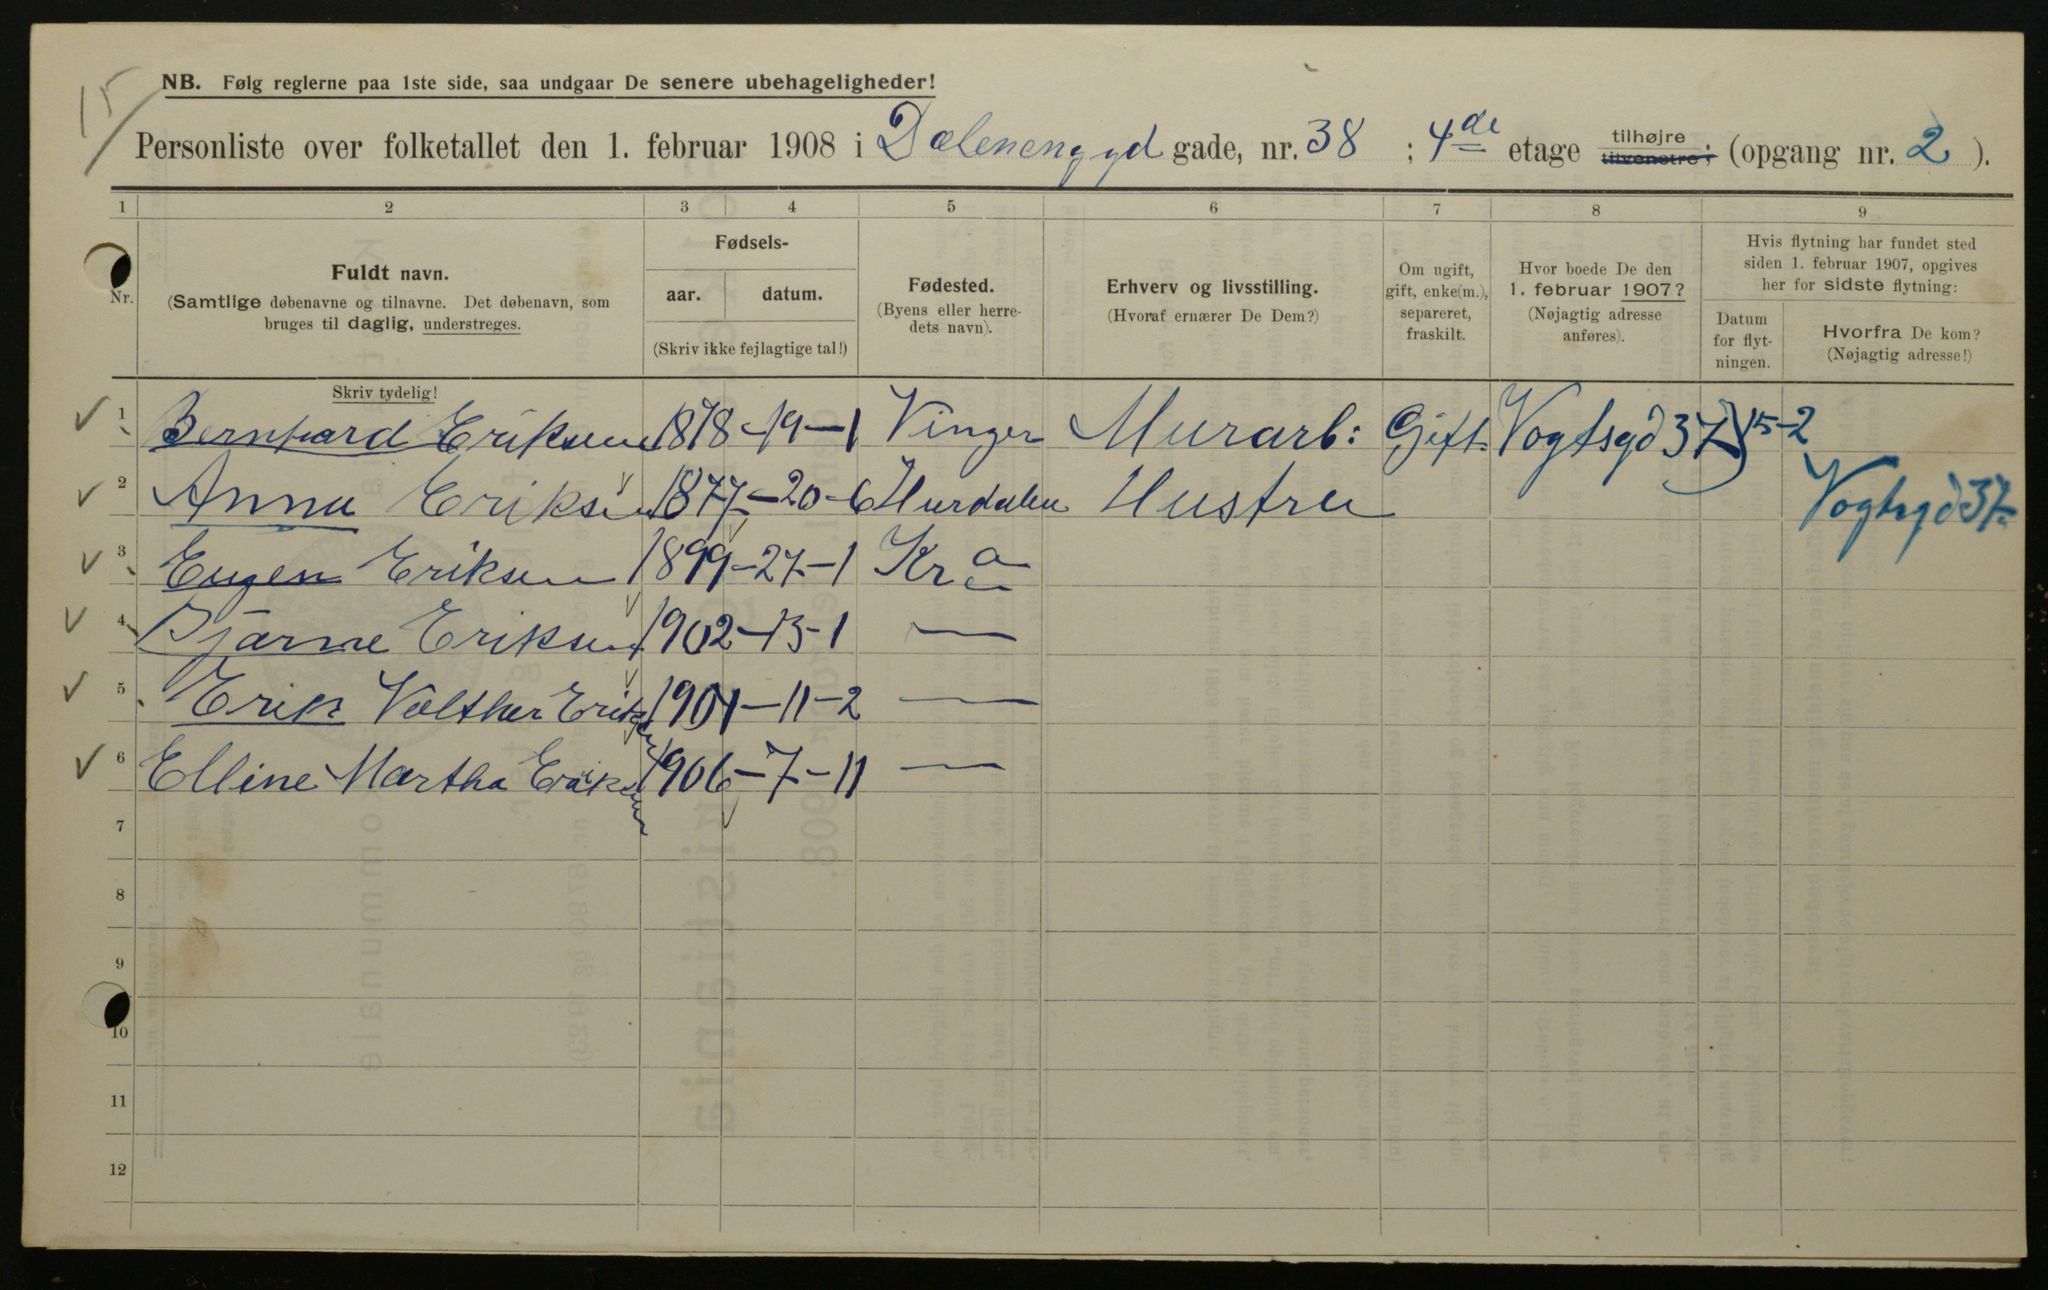 15
NB. Følg reglerne paa 1ste side, saa undgaar De senere ubehageligheder!
Personliste over folketallet den 1. februar 1908 i Dælenenggd gade, nr. 38 ; 4de etage tilhøjre tilvenstre; (opgang nr. 2 ).
1 2 3 4 5 6 7 8 9
Nr.
Fuldt navn.
(Samtlige døbenavne og tilnavne. Det døbenavn, som
bruges til daglig, understreges.
Skriv tydelig!
Fødsels-
aar. datum.
(Skriv ikke fejlagtige tal!)
Fødested.
(Byens eller herre-
dets navn).
Erhverv og livsstilling.
(Hvoraf ernærer De Dem?)
Om ugift,
gift, enke(m.),
separeret,
fraskilt.
Hvor boede De den
1. februar 1907?
(Nøjagtig adresse
anføres).
Hvis flytning har fundet sted
siden 1. februar 1907, opgives
her for sidste flytning:
Datum
for flyt-
ningen.
Hvorfra De kom?
(Nøjagtig adresse!)
1 Bernhard Eriksen 1878-19-1 Vinger Murarb: Gift Vogtsgd 37 15-2
2 Anna Eriksen 1877-20-6 Hurdalen Hustru Vogtsgd 37
3 Eugen Eriksen 1899-27-1 Kra
4 Bjarne Eriksen 1902-13-1 —
5 Erik Valther Eriksen -11-2 —
6 Elline Martha Eriksen 1906-7-11 —
7
8
9
10
11
12